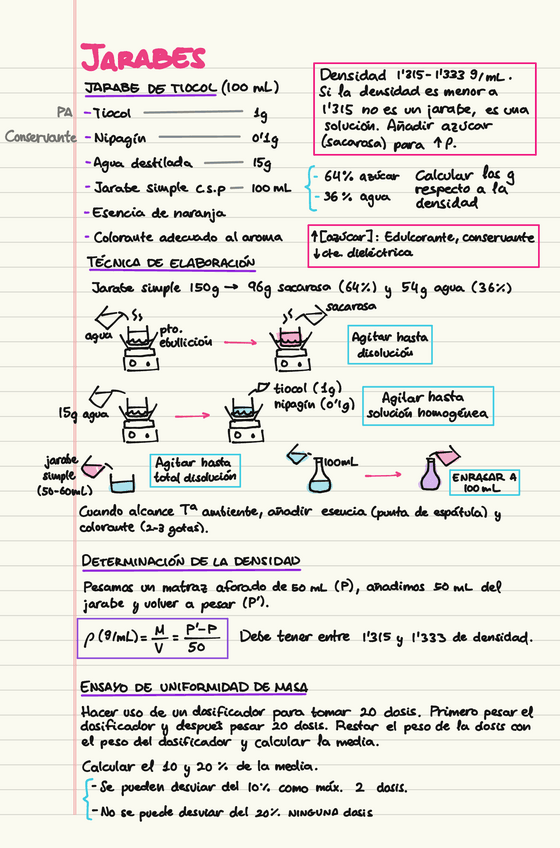 JARABES
JARABE DE TIOCOL (100 mL)
PA - Tiocol 1g
Conservante - Nipagín 0'1g
- Agua destilada 15g
- Jarabe simple c.s.p 100 mL
- Esencia de naranja
- Colorante adecuado al aroma
Densidad 1'315-1'333 g/mL.
Si la densidad es menor a
1'315 no es un jarabe, es una
solución. Añadir azúcar
(sacarosa) para ↑ρ.
- 64% azúcar
- 36% agua
Calcular los g
respecto a la
densidad
↑[azúcar]: Edulcorante, conservante
↓cte. dieléctrica
TÉCNICA DE ELABORACIÓN
Jarabe simple 150g → 96g sacarosa (64%) y 54g agua (36%)
agua
pto.
ebullición
sacarosa
Agitar hasta
disolución
15g agua
tiocol (1g)
nipagín (0'1g)
Agilar hasta
solución homogénea
jarabe
simple
(50-60mL)
Agitar hasta
total disolución
100mL
ENRASAR A
100 mL
Cuando alcance Tª ambiente, añadir esencia (punta de espátula) y
colorante (2-3 gotas).
DETERMINACIÓN DE LA DENSIDAD
Pesamos un matraz aforado de 50 mL (P), añadimos 50 mL del
jarabe y volver a pesar (P').
ρ (g/mL) = M/V = P'-P/50
Debe tener entre 1'315 y 1'333 de densidad.
ENSAYO DE UNIFORMIDAD DE MASA
Hacer uso de un dosificador para tomar 20 dosis. Primero pesar el
dosificador y después pesar 20 dosis. Restar el peso de la dosis con
el peso del dosificador y calcular la media.
Calcular el 10 y 20 % de la media.
- Se pueden desviar del 10% como máx. 2 dosis.
- No se puede desviar del 20% NINGUNA dosis